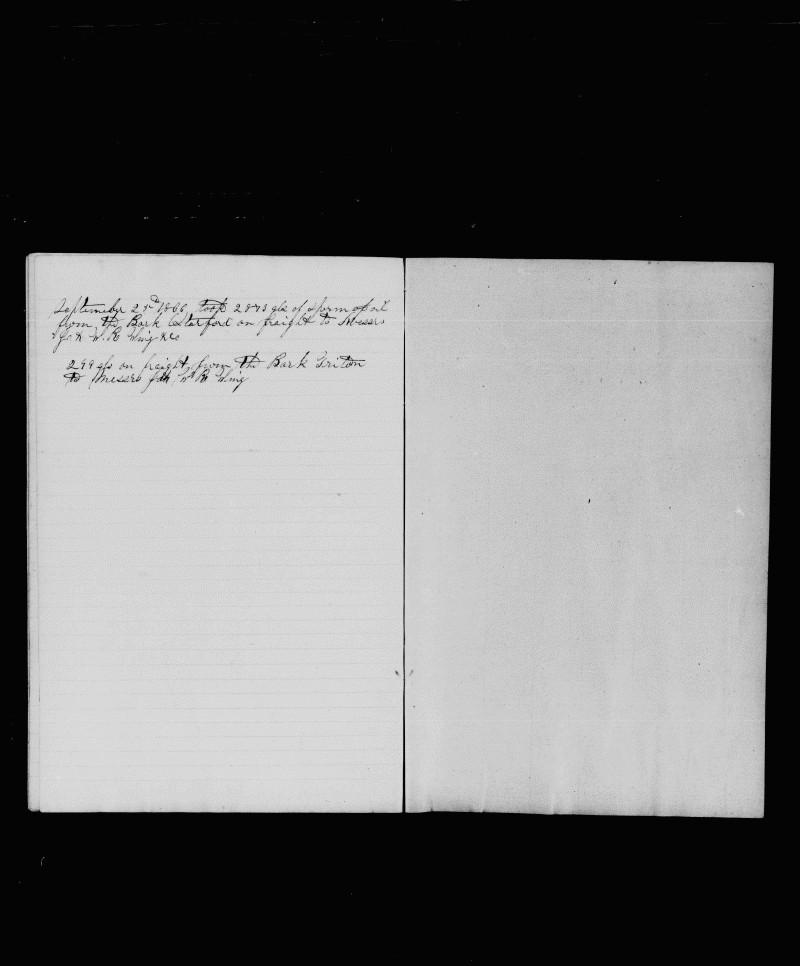 September 2nd 1866 took 2873 gls of Sperm oil
from the Bark on freight to Messrs
J & W. R. Wing & Co
299 gls on freight from the Bark Triton
to Messrs J & W R Wing